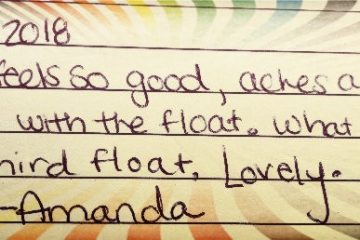 2018
feels so good, aches a
with the float. What
hird float. Lovely.
-Amanda